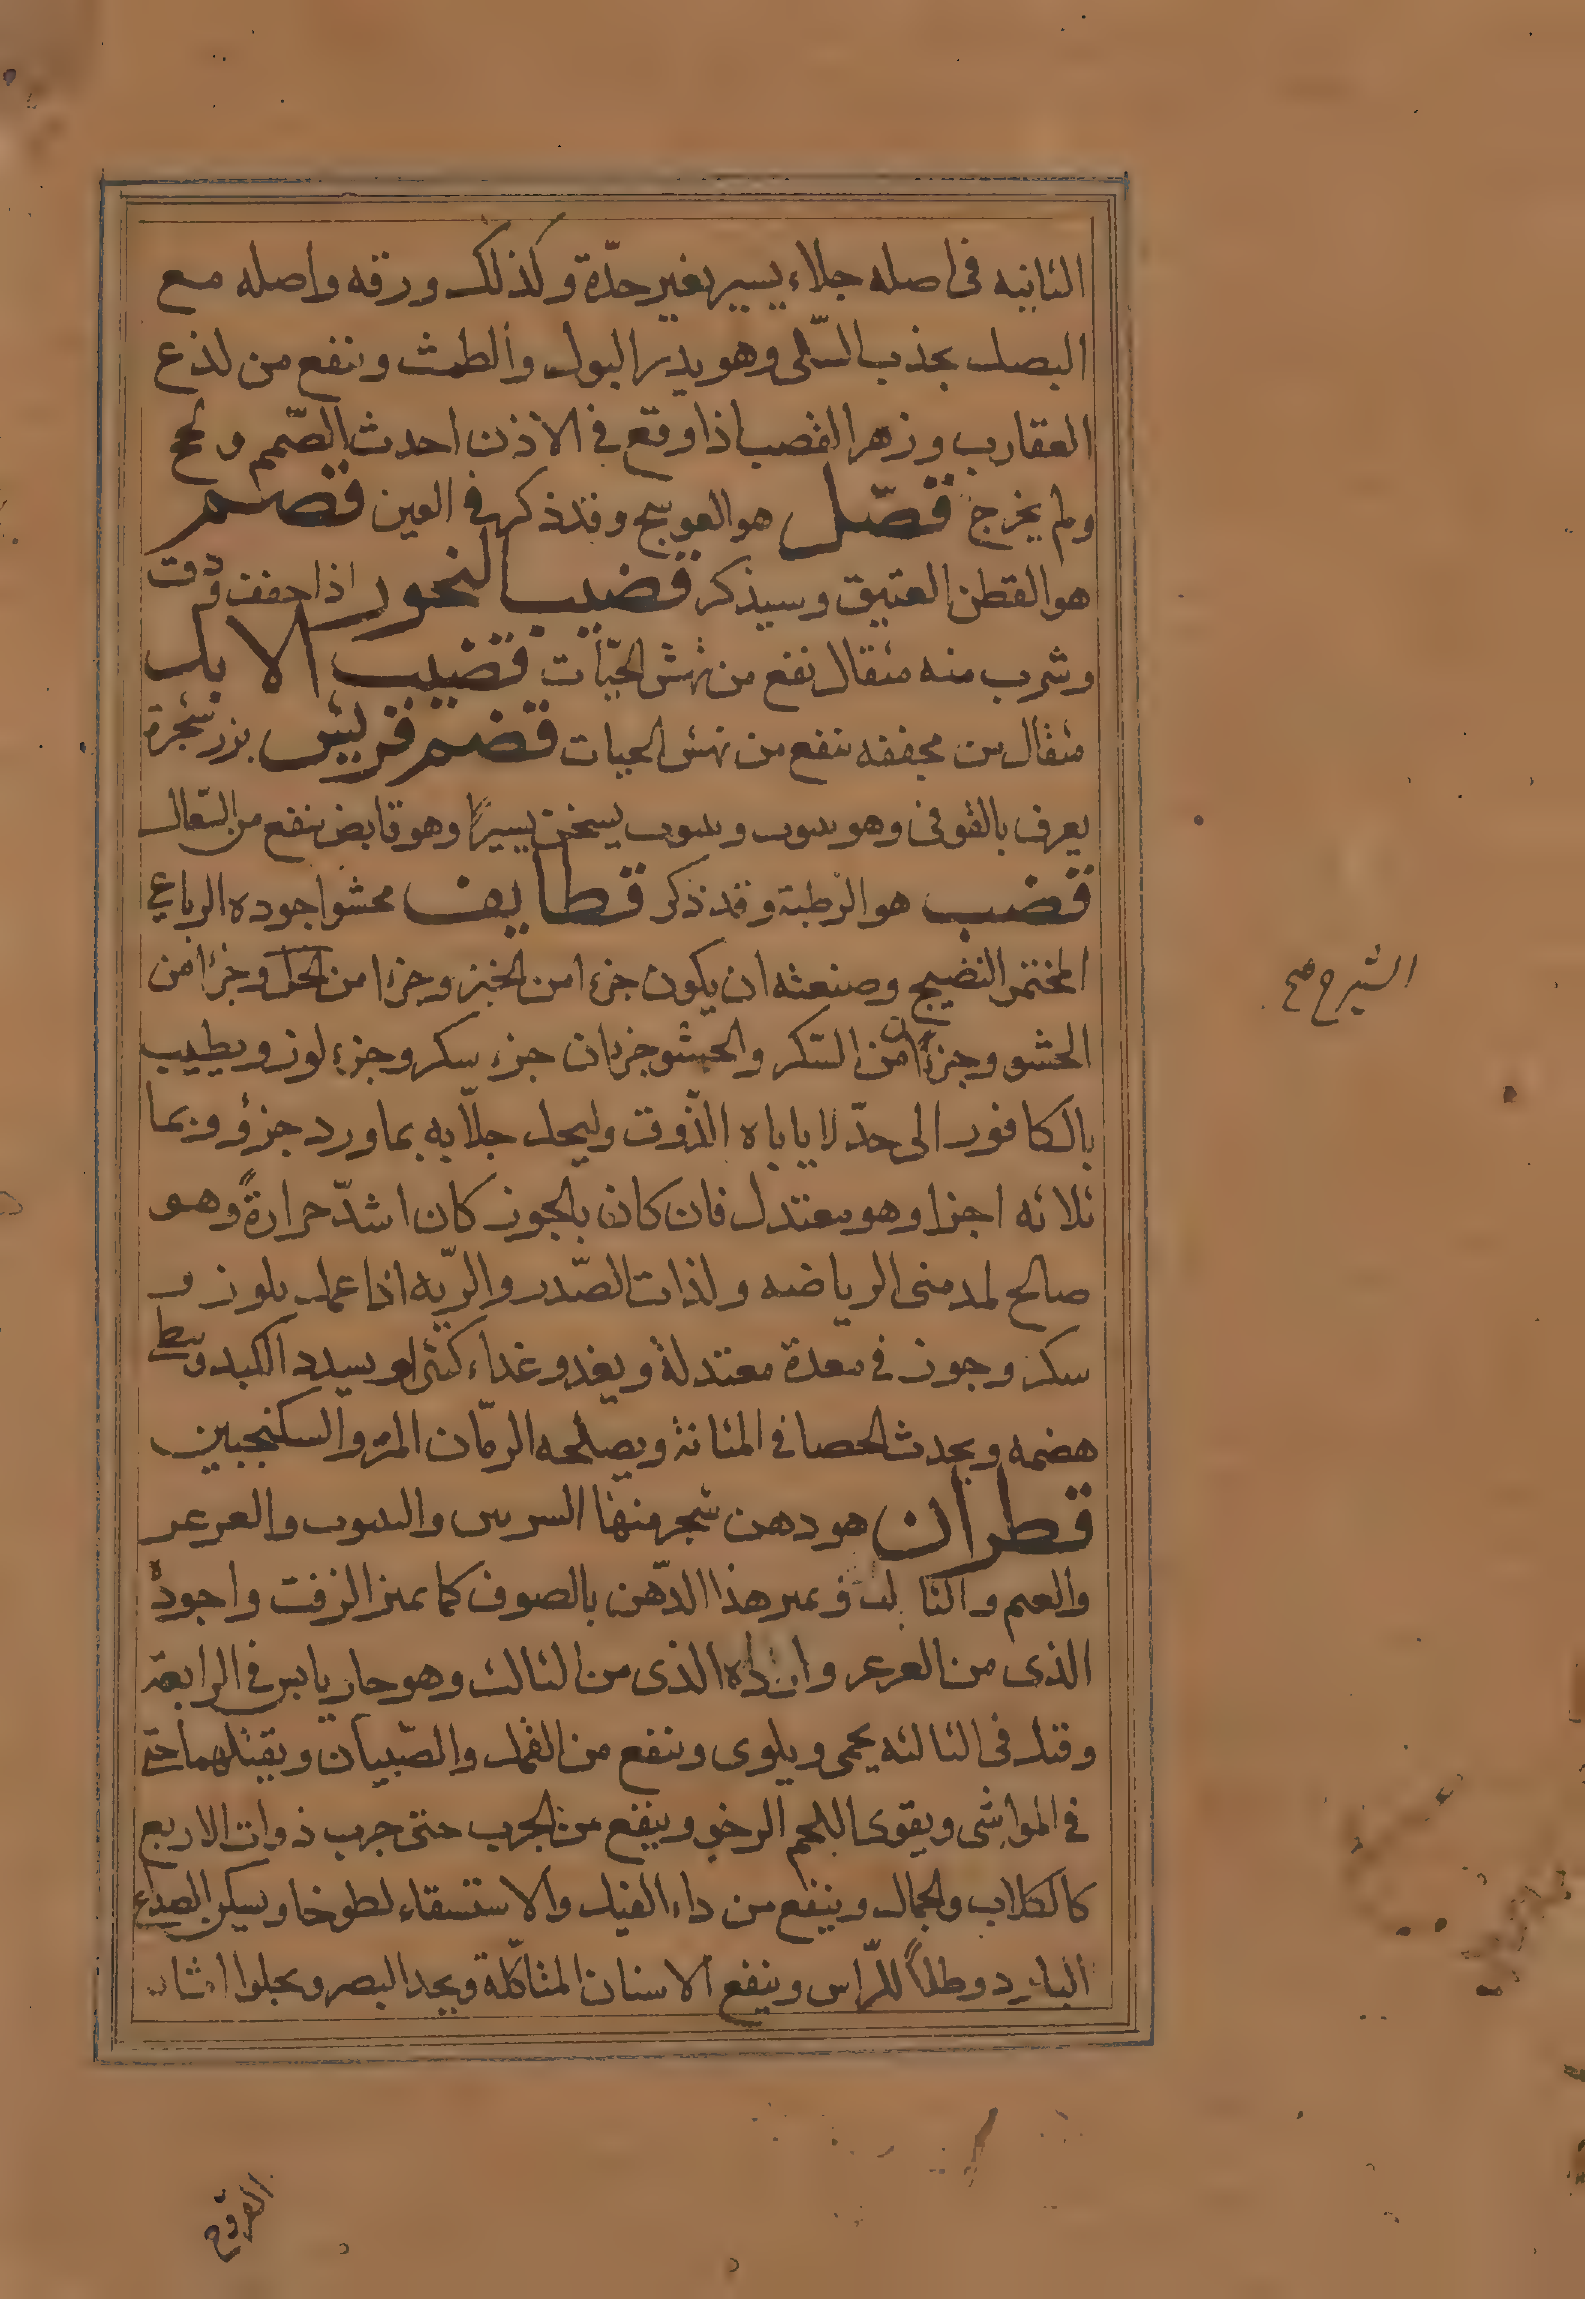 الثانيه فى اصله جلاء يسير بغير حدّة وكذلك ورقه واصله مع
البصل يجذب السّلى وهو يدر البول والطمث وينفع من لذع
العقارب وزهر القصب اذا وقع فى الاذن احدث الصّمم و لحج
ولم يخرج قصّل هو العوسج وقد ذكر فى العين قصم
هو القطن العتيق وسيذكر قضيب النحور اذا جفف و دق
وشرب منه مثقال نفع من نهش الحيّات قضيب الايل
مثقال من مجففه ينفع من نهش الحيات قضم قريش بزر شجرة
يعرف بالقوفى وهو ينبوب وينبوب يسخن يسيرًا وهو قابض ينفع من السّعال
قضب هو الرطبة وقد ذكر قطايف محشوا جوده الرباعي
المختمر النضيج وصنعته ان يكون جزءا من الخبز وجزءا من الخل وجزءا من
الحشو وجزءًا من السّكر والحشو جزءان جزء سكر وجزء لوز ويطيب
بالكافور الى حدّ لا ياباه الذّوق وليحل جلّابه بماورد جزؤ وبما
ثلاثه اجزا وهو معتدل فان كان بالجوز كان اشدّ حرارةً وهو
صالح لمدمنى الرياضه ولذات الصّدر والريّه اذا عمل بلوز و
سكر وجوز فى معدة معتدلة ويغدو غذاء كثيرا ويسدد الكبد ويبطى
هضمه ويحدث الحصا فى المثانة ويصلحه الرمّان المز والسكنجبين
قطران هو دهن شجر منها السرس والسوب والعرعر
والعم والتالب و يميز هذا الدّهن بالصوف كما يميز الزفت واجوده
الذى من العرعر وارداه الذى من الثالث وهو حار يابس فى الرابعة
وقيل فى الثالثه يحمى ويلوى وينفع من القمل والصّيبان ويقتلهما حتى
فى المواشى ويقوى اللحم الرخو وينفع من الجرب حتى جرب ذوات الاربع
كالكلاب والجمال وينفع من داء الفيل والاستسقاء لطوخا ويسكن الصداع
البارد وطلاً للرّاس وينفع الاسنان المتاكّلة ويحد البصر ويجلوا اثار
الشيرج صح
القروح